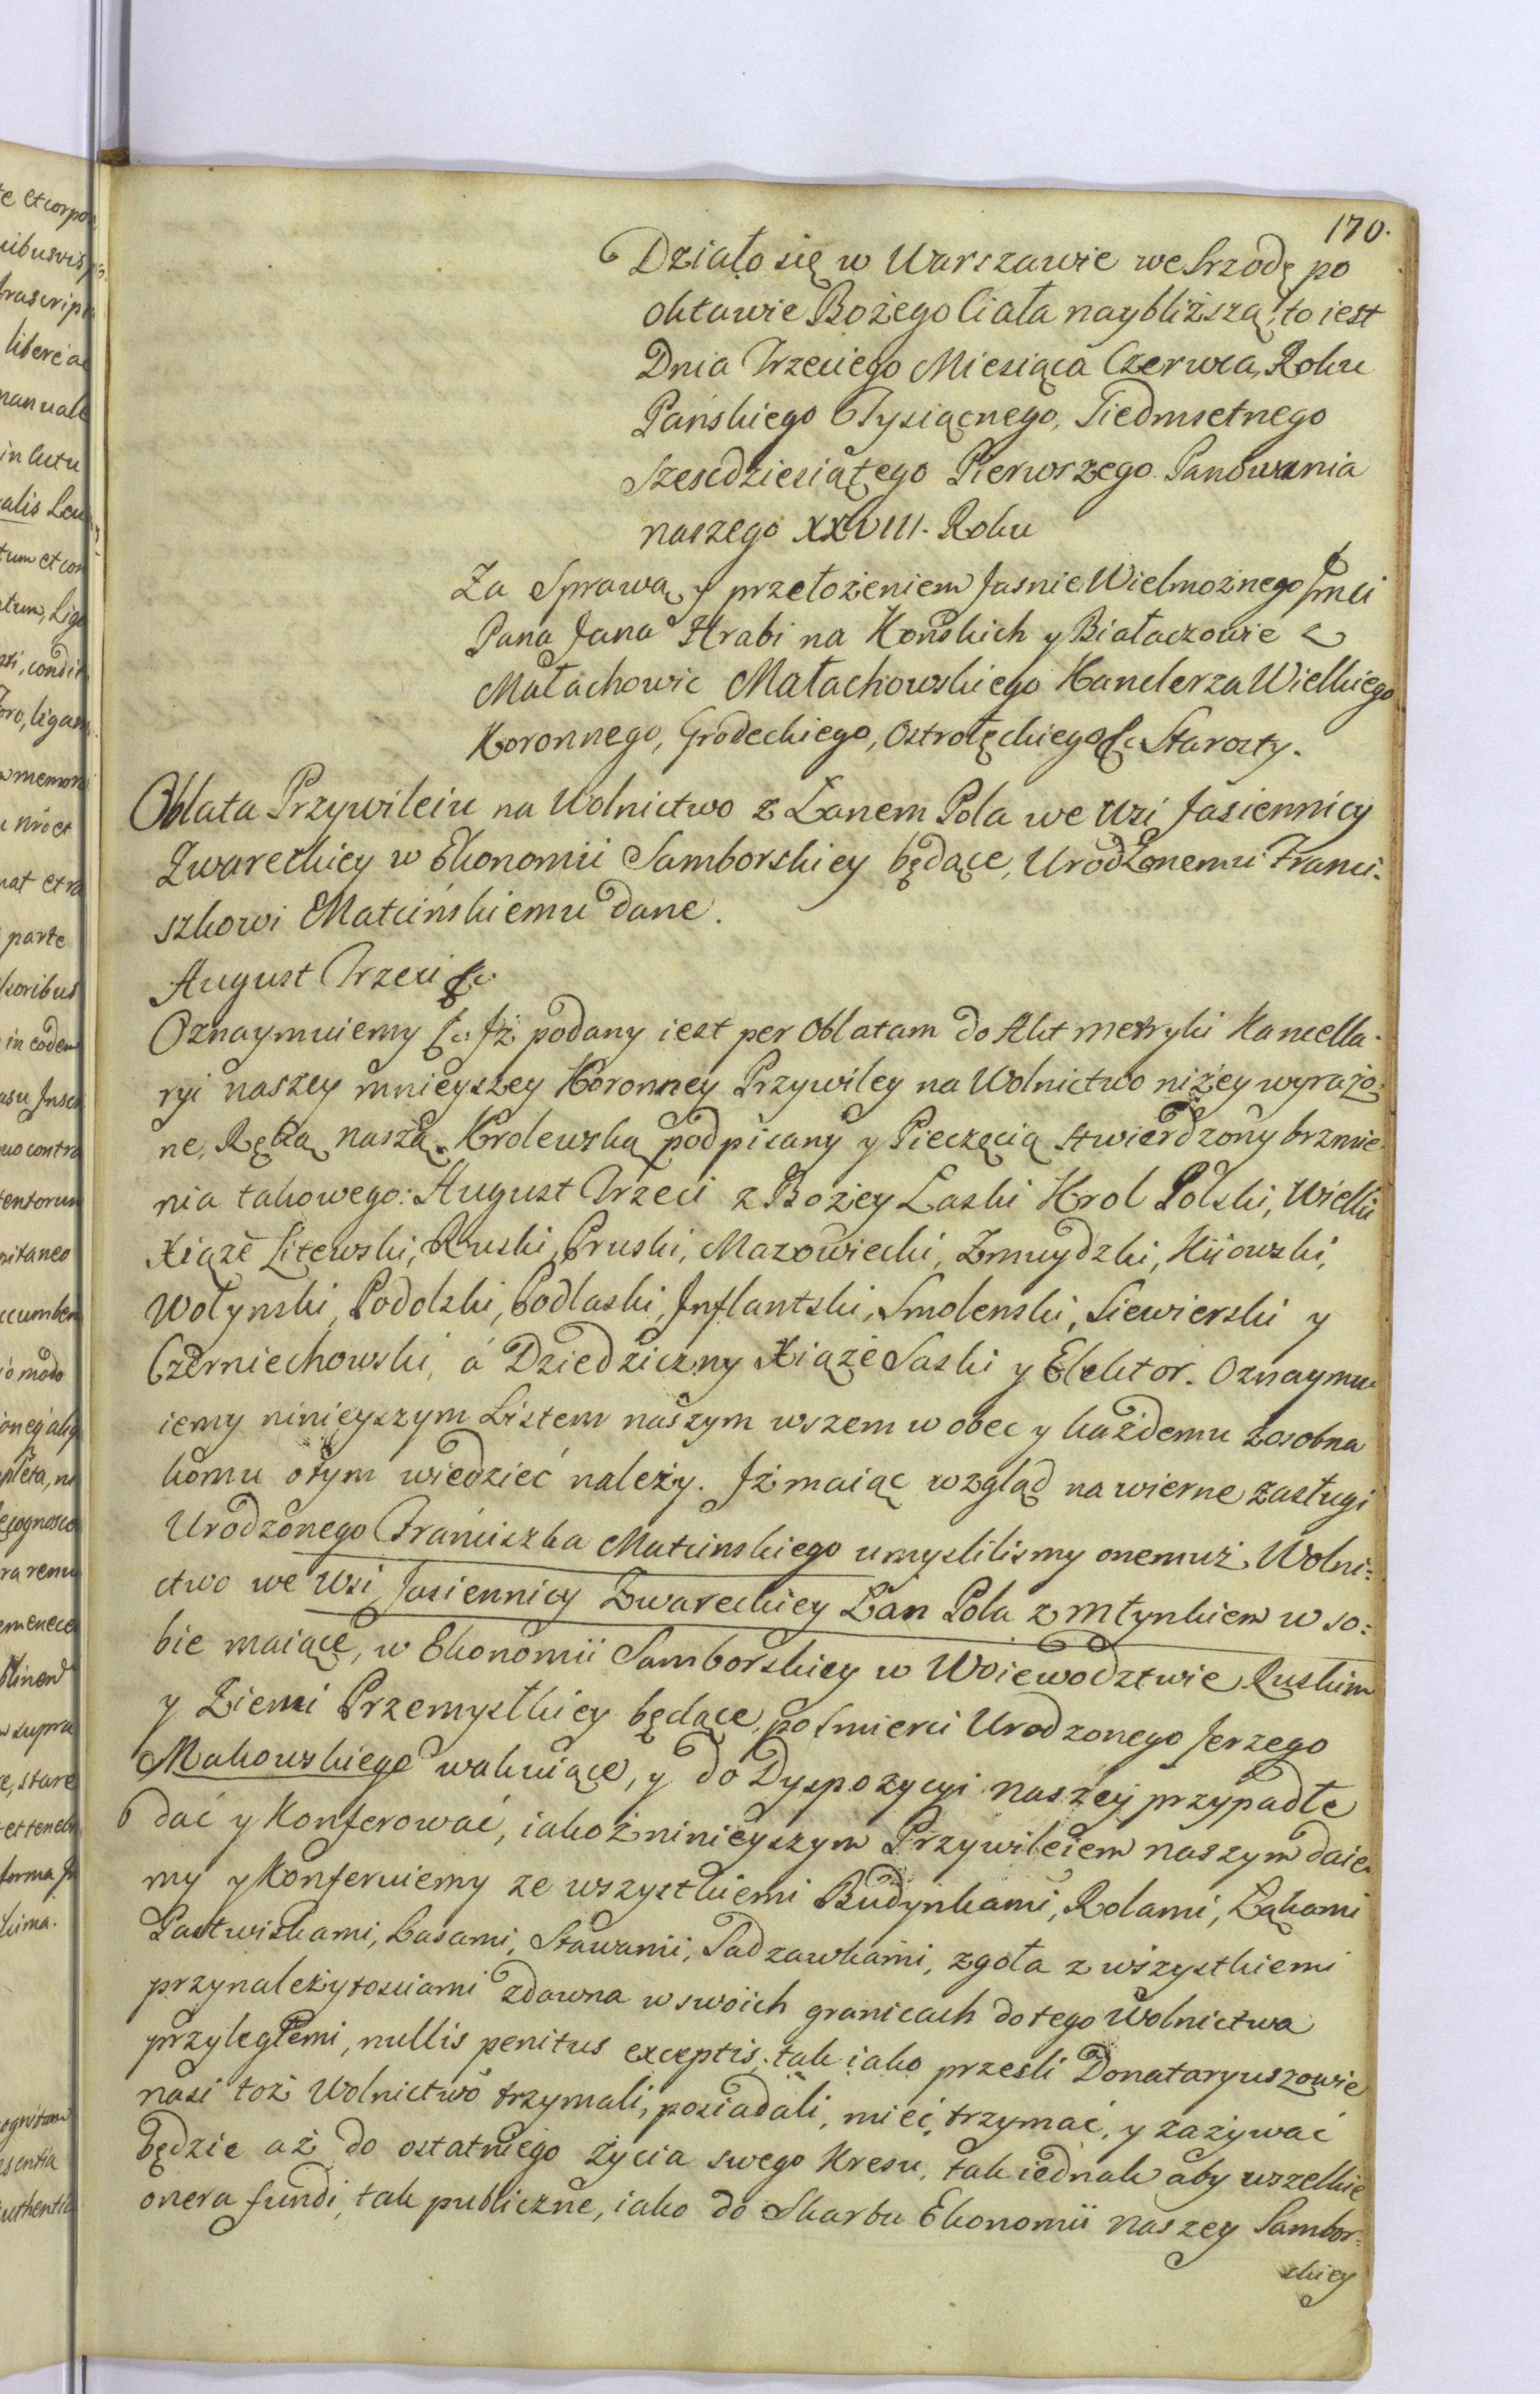 170.
Działo się w Warszawie we Srzodę po
oktawie Bożego Ciała naybliższą, to iest
Dnia Trzeciego Miesiąca Czerwca, Roku
Pańskiego Tysiącnego, Siedmsetnego
Szescdziesiątego Pierwszego. Panowania
naszego XXVIII. Roku
Za Sprawą y przełożeniem Jasnie Wielmożnego Jmci
Pana Jana Hrabi na Końskich y Białaczowie z
Małachowic Małachowskiego Kanclerza Wielkiego
Koronnego, Grodeckiego, Ostrołęckiego &c. Starosty.
Oblata Przywileiu na Wolnictwo z Łanem Pola we Wsi Jasiennicy
Zwareckiey w Ekonomii Samborskiey będące, Urodzonemu Franci-
szkowi Matcińskiemu dane.
August Trzeci &c.
Oznaymuiemy &c. Jż podany iest per Oblatam do Akt metryki Kancella-
ryi naszey mnieyszey Koronney Przywiley na Wolnictwo niżey wyrażo-
ne, Ręką naszą Krolewską podpisany y Pieczęcią stwierdzony brzmie-
nia takowego: August Trzeci z Bożey Łaski Krol Polski, Wielki
Xiąże Litewski, Ruski, Pruski, Mazowiecki, Zmuydzki, Kiiowski,
Wołynski, Podolski, Podlaski, Jnflantski, Smolenski, Siewierski y
Czerniechowski, á Dziedziczny Xiąże Saski y Elektor. Oznaymu-
iemy ninieyszym Listem naszym wszem w obec y każdemu zosobna
komu otym wiedzieć należy. Jż maiąc wzgląd na wierne zasługi
Urodzonego Franciszka Matcinskiego umyslilismy onemuż Wolni-
ctwo we Wsi Jasiennicy Zwareckiey Łan Pola z młynkiem w so-
bie maiące, w Ekonomii Samborskiey w Woiewodztwie Ruskim
y Ziemi Przemyskiey będące, po smierci Urodzonego Jerzego
Makowskiego wakuiące, y do Dyspozycyi naszey przypadłe
dać y Konferować, iakoż ninieyszym Przywileiem naszym daie-
my y Konferuiemy ze wszystkiemi Budynkami, Rolami, Łąkami
Pastwiskami, Lasami, Stawami, Sadzawkami, zgoła z wszystkiemi
przynależytosciami zdawna w swoich granicach do tego Wolnictwa
przyległemi, nullis penitus exceptis, tak iako przesli Donataryuszowie
nasi toż Wolnictwo trzymali, posiadali, mieć, trzymać, y zażywać
będzie aż do ostatniego życia swego Kresu, tak iednak aby wszelkie
onera fundi, tak publiczne, iako do Skarbu Ekonomii naszey Sambor-
skiey